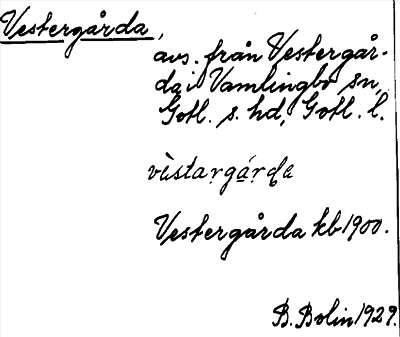 Vestergårda,
avs. från Vestergår-
da i Vamlingbo sn,
Gotl. s. hd, Gotl. l.
Vestergårda kb 1900.
B. Bolin 1929.